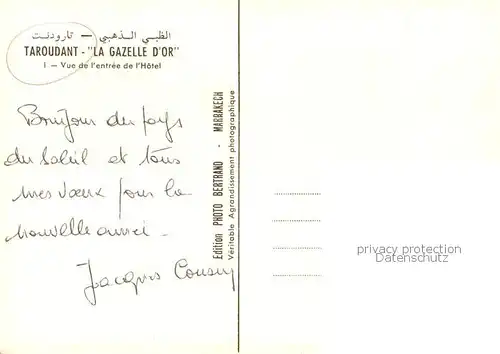 الظبي الذهبي — تارودنت
TAROUDANT - "LA GAZELLE D'OR"
1 – Vue de l'entrée de l'Hôtel
Bonjour du pays
du Soleil et tous
mes vœux pour la
nouvelle année -
Jacques
Edition PHOTO BERTRAND - MARRAKECH
Véritable Agrandissement photographique
privacy protection
Datenschutz